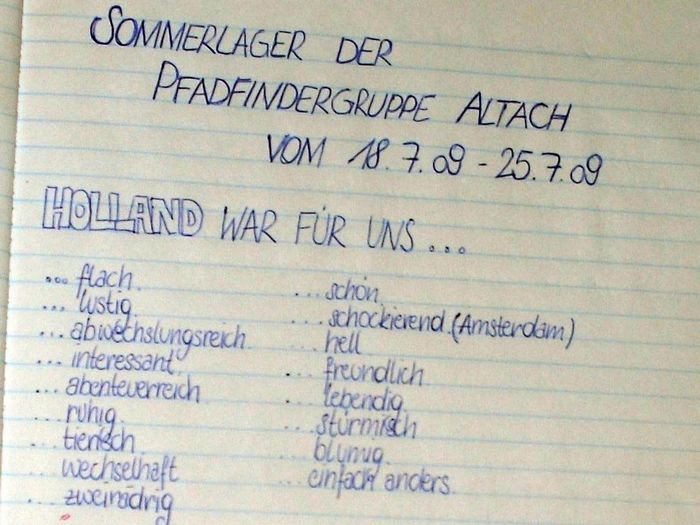 SOMMERLAGER DER
PFADFINDERGRUPPE ALTACH
VOM 18.7.09 - 25.7.09
HOLLAND WAR FÜR UNS...
... flach
... lustig
... abwechslungsreich
... interessant
... abenteuerreich
... ruhig
... tierisch
... wechselhaft
... zweirädrig
... schön
... schockierend (Amsterdam)
... hell
... freundlich
... lebendig
... stürmisch
... blumig
... einfach anders